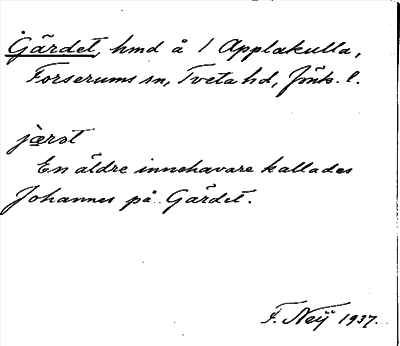 Gärdet, hmd å 1 Applakulla,
Forserums sn, Tveta hd, Jönk. l.
jærət
En äldre innehavare kallades
Johannes på Gärdet.
F. Neij 1937.